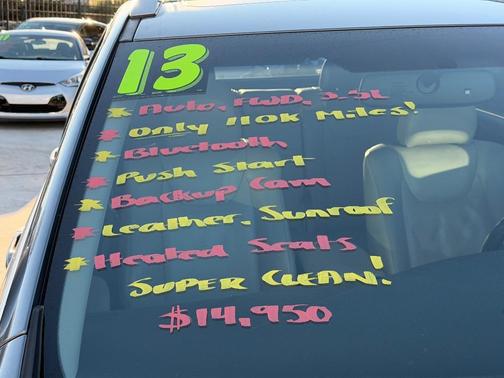 13
* Auto, FWD, 3.5L
* Only 110K Miles!
* Bluetooth
* Push Start
* Backup Cam
* Leather, Sunroof
* Heated Seats
SUPER CLEAN!
$14,950